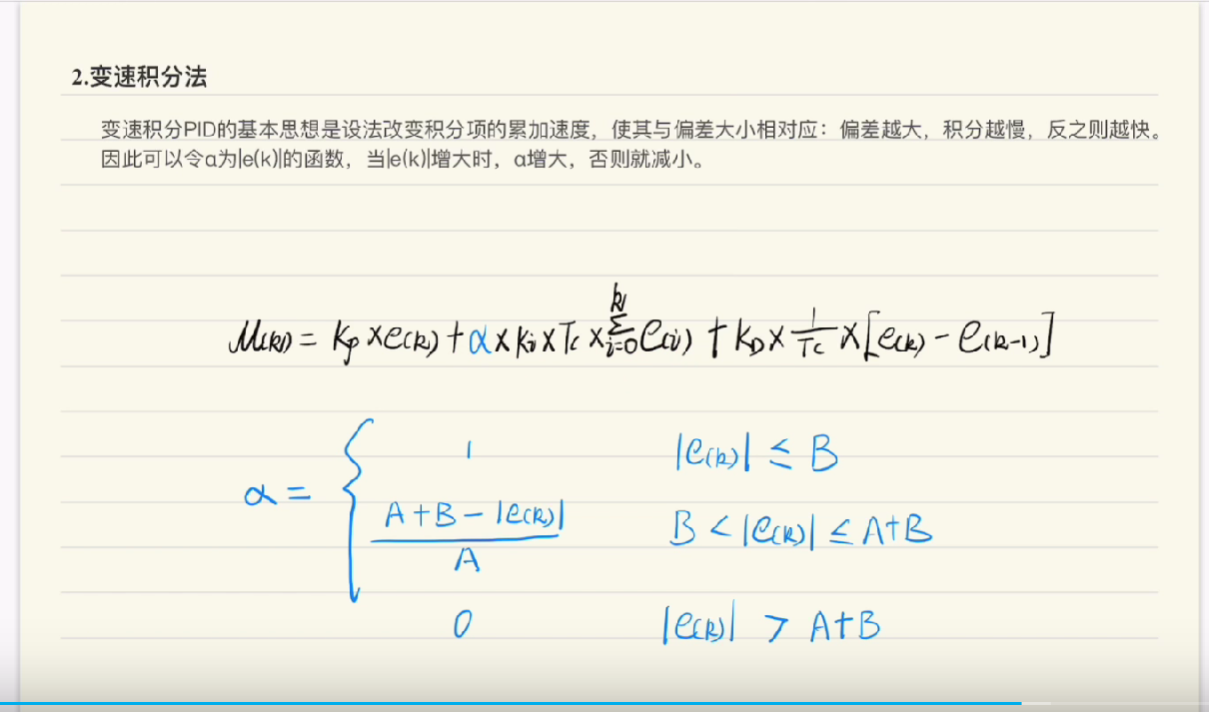 2.变速积分法
变速积分PID的基本思想是设法改变积分项的累加速度，使其与偏差大小相对应：偏差越大，积分越慢，反之则越快。
因此可以令α为|e(k)|的函数，当|e(k)|增大时，α增大，否则就减小。
μ(k) = Kp × e(k) + α × Ki × Tc × Σ_{i=0}^{k} e(i) + KD × 1/Tc × [e(k) - e(k-1)]
α = {
1 |e(k)| ≤ B
(A+B-|e(k)|)/A B < |e(k)| ≤ A+B
0 |e(k)| > A+B